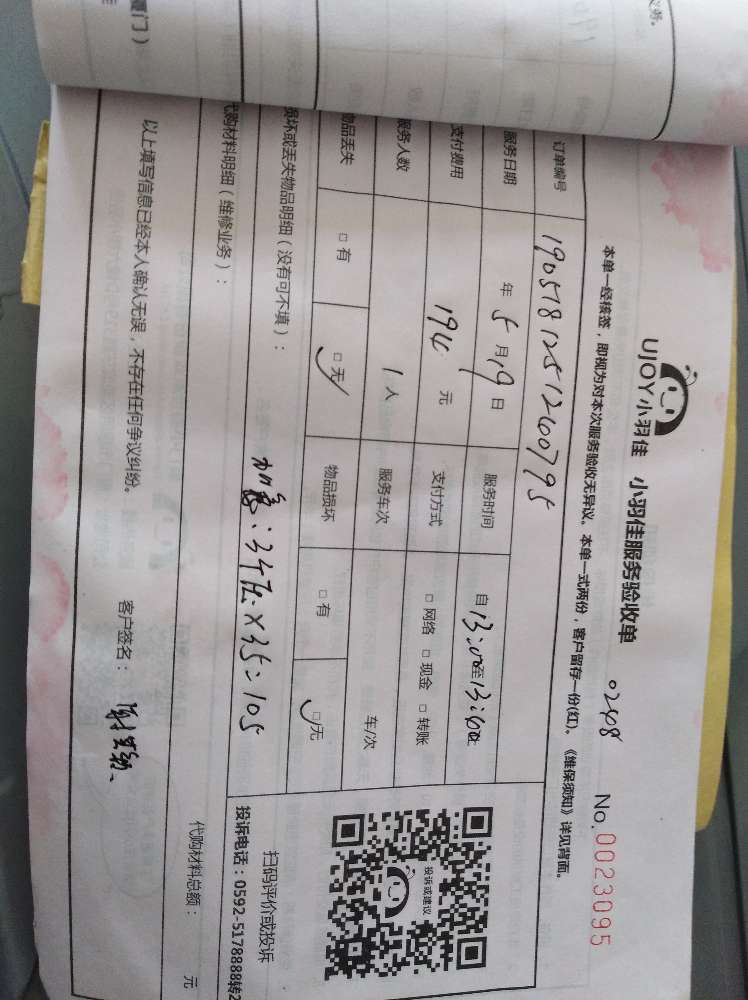 UJOY小羽佳 小羽佳服务验收单 0248 No.0023095
本单一经核签，即视为对本次服务验收无异议。本单一式两份，客户留存一份(红)。《维保须知》详见背面。
订单编号
服务日期 年 5 月 19 日 服务时间 自 13:00 至
支付费用 元 支付方式 □ 网络 □ 现金 □ 转账
服务人数 1 人 服务车次 车/次
物品丢失 □ 有 □ 无 物品损坏 □ 有 □ 无
损坏或丢失物品明细（没有可不填）：
X35=105
投诉或建议
扫码评价或投诉
投诉电话：0592-5178888转2
代购材料明细（维修业务）： 代购材料总额： 元
以上填写信息已经本人确认无误，不存在任何争议纠纷。 客户签名：
厦门）